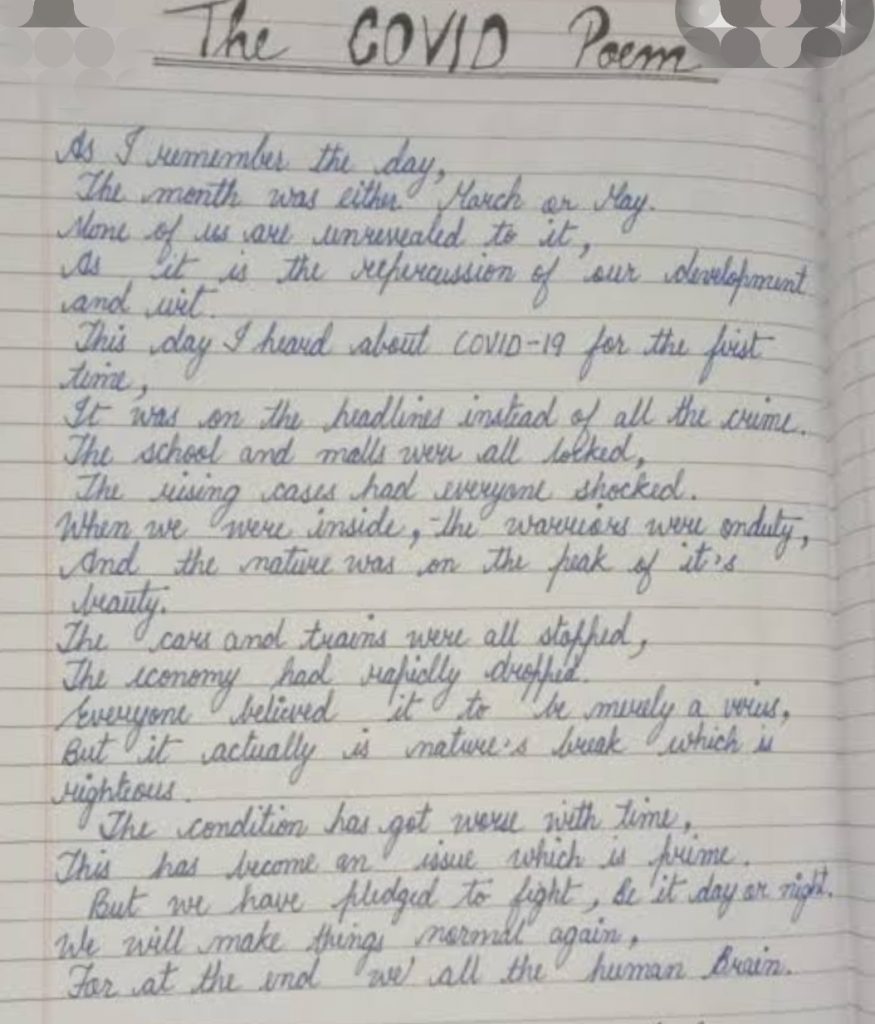 The COVID Poem
As I remember the day,
The month was either March or May.
None of us are unrevealed to it,
As it is the repercussion of our development
and wit.
This day I heard about COVID-19 for the first
time,
It was on the headlines instead of all the crime.
The school and malls were all locked,
The rising cases had everyone shocked.
When we were inside, the warriors were onduty,
And the nature was on the peak of it's
beauty.
The cars and trains were all stopped,
The economy had rapidly dropped.
Everyone believed it to be merely a virus,
But it actually is nature's break which is
righteous.
The condition has got worse with time,
This has become an issue which is prime.
But we have pledged to fight, Be it day or night.
We will make things normal again,
For at the end we all the human Brain.